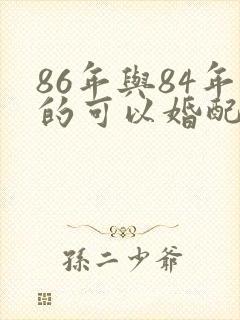 86年與84年
的可以婚配
孫二少爺